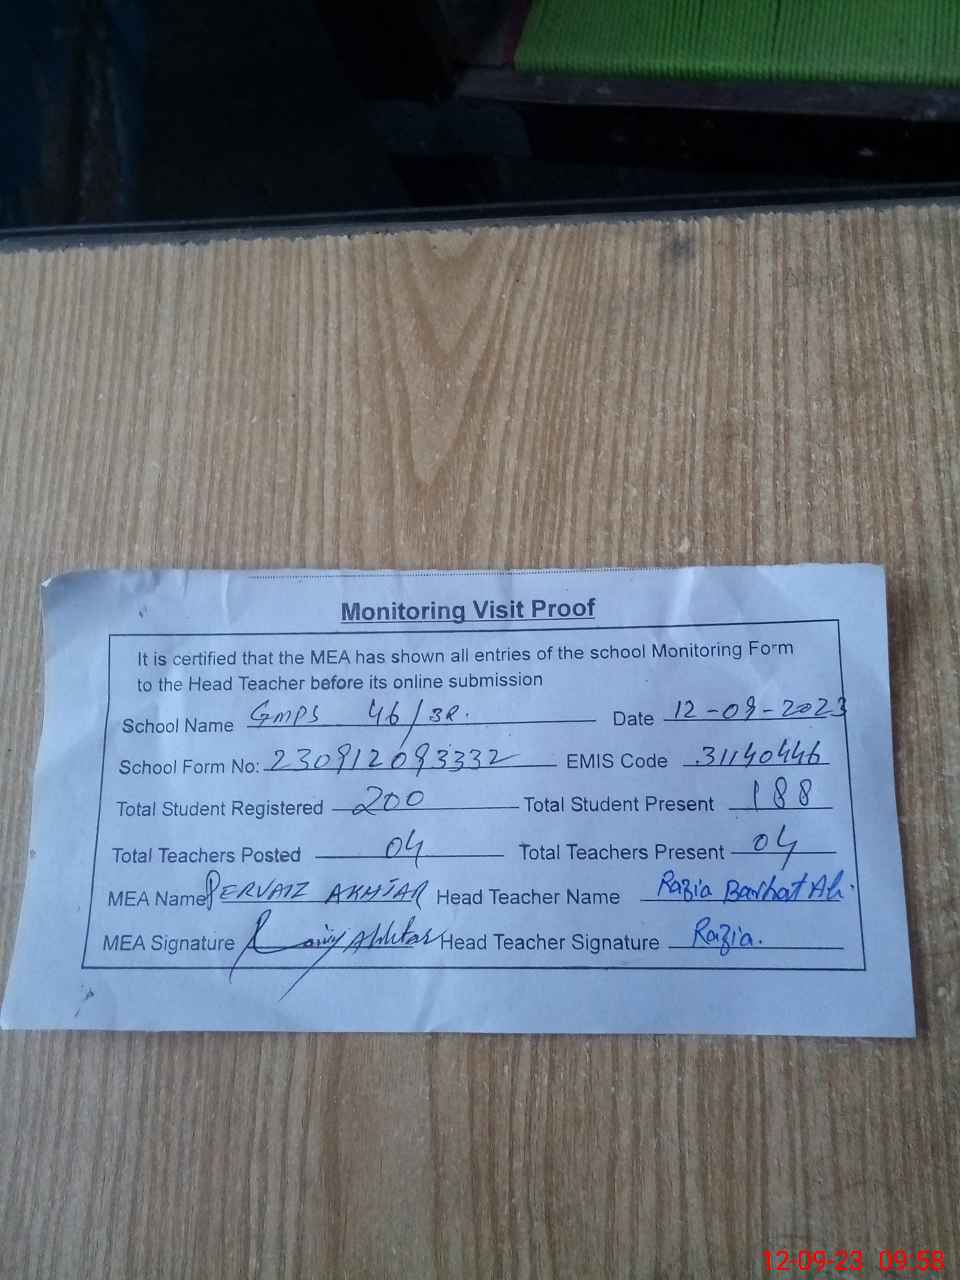 Monitoring Visit Proof
It is certified that the MEA has shown all entries of the school Monitoring Form
to the Head Teacher before its online submission
School Name GMPS 46/3R. Date 12-09-2023
School Form No: 230912093332 EMIS Code 31140446
Total Student Registered 200 Total Student Present 188
Total Teachers Posted 04 Total Teachers Present 04
MEA Name PERVAIZ AKHTAR Head Teacher Name Razia Barkat Ali.
MEA Signature Akhtar Head Teacher Signature Razia.
12-09-23 09:58